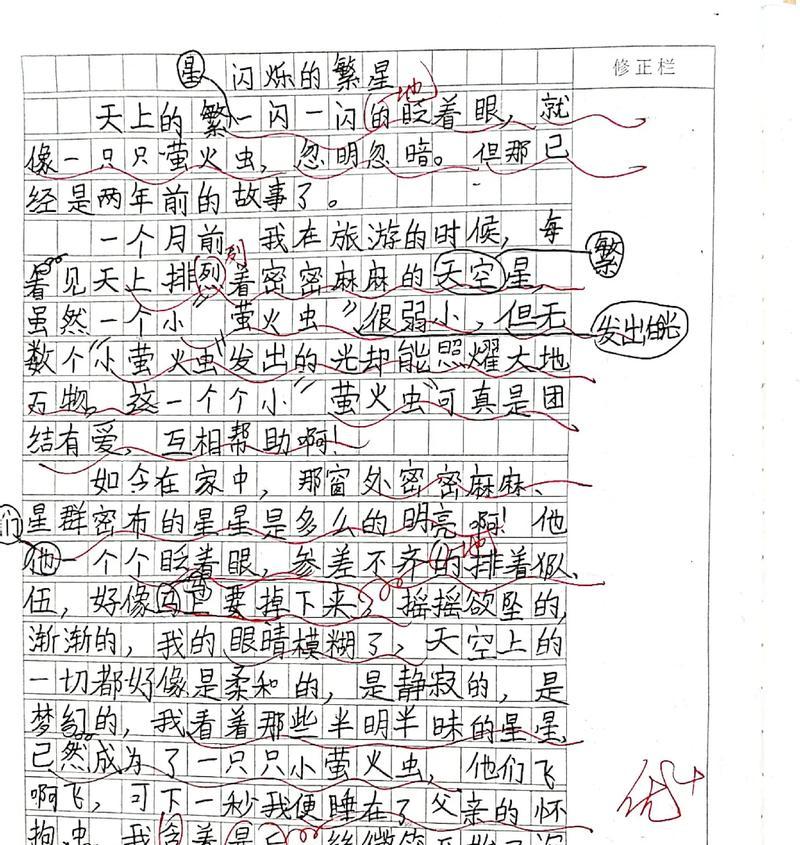 修正栏
星 闪烁的繁星
天上的繁一闪一闪的地眨着眼，就
像一只只萤火虫，忽明忽暗。但那已
经是两年前的故事了。
一个月前 我在旅游的时候，每
列 繁
看见天上排烈着密密麻麻的天空星
虽然一个小“萤火虫”很弱小，但无
发出
数个“小萤火虫”发出的光却能照耀大地
万物。这一个个小“萤火虫”可真是团
结有爱，互相帮助啊！
如今在家中，那窗外密密麻麻、
星群密布的星星是多么的明亮啊！他
们 地
她一个个眨着眼，参差不齐的排着队
伍，好像 要掉下来，摇摇欲坠的，
渐渐的，我的眼睛模糊了，天空上的
一切都好像是柔和的，是静寂的，是
梦幻的，我看着那些半明半昧的星星
已然成为了一只只小萤火虫，他们飞
啊飞，可下一秒我便睡在了父亲的怀
优+
抱中，我含着